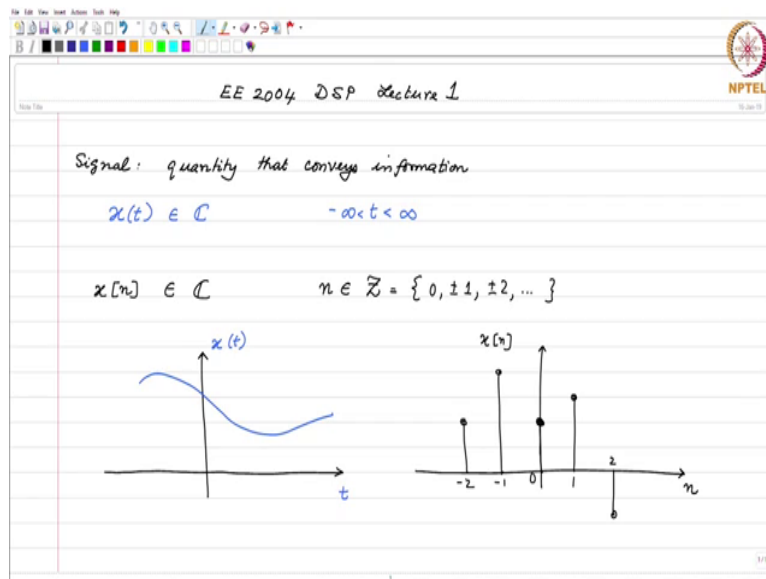 File Edit View Insert Actions Tools Help
B I
NPTEL
EE 2004 DSP Lecture 1
Note Title
Signal: quantity that conveys information
x(t) ∈ ℂ -∞ < t < ∞
x[n] ∈ ℂ n ∈ ℤ = { 0, ±1, ±2, ... }
x(t)
x[n]
2
-2 -1 0 1
t
n
1/1